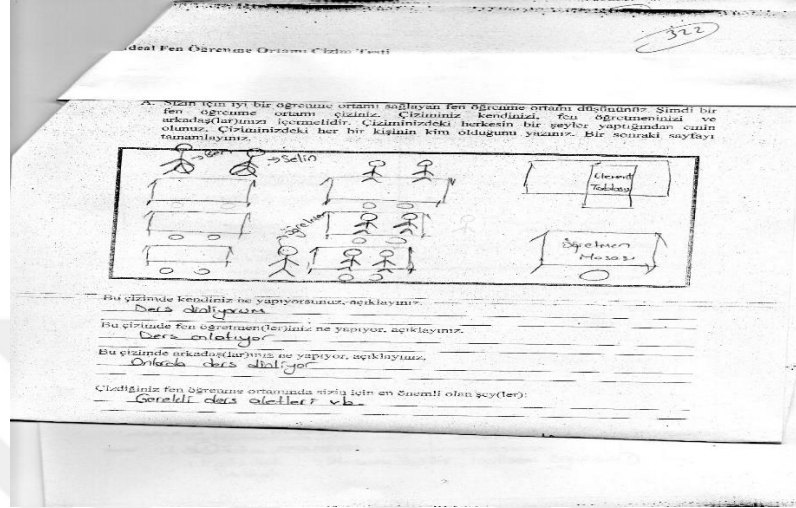 322
İdeal Fen Öğrenme Ortamı Çizim Testi
A. Sizin için iyi bir öğrenme ortamı sağlayan fen öğrenme ortamı düşününüz. Şimdi bir
fen öğrenme ortamı çiziniz. Çiziminiz kendinizi, fen öğretmeninizi ve
arkadaş(lar)ınızı içermelidir. Çiziminizdeki herkesin bir şeyler yaptığından emin
olunuz. Çiziminizdeki her bir kişinin kim olduğunu yazınız. Bir sonraki sayfayı
tamamlayınız.
Ben
Selin
Element
Tablosu
öğretmen
Öğretmen
Masası
Bu çizimde kendiniz ne yapıyorsunuz, açıklayınız.
Ders dinliyorum
Bu çizimde fen öğretmen(ler)iniz ne yapıyor, açıklayınız.
Ders anlatıyor
Bu çizimde arkadaş(lar)ınız ne yapıyor, açıklayınız.
Onlarda ders dinliyor
Çizdiğiniz fen öğrenme ortamında sizin için en önemli olan şey(ler):
Gerekli ders aletleri vb.